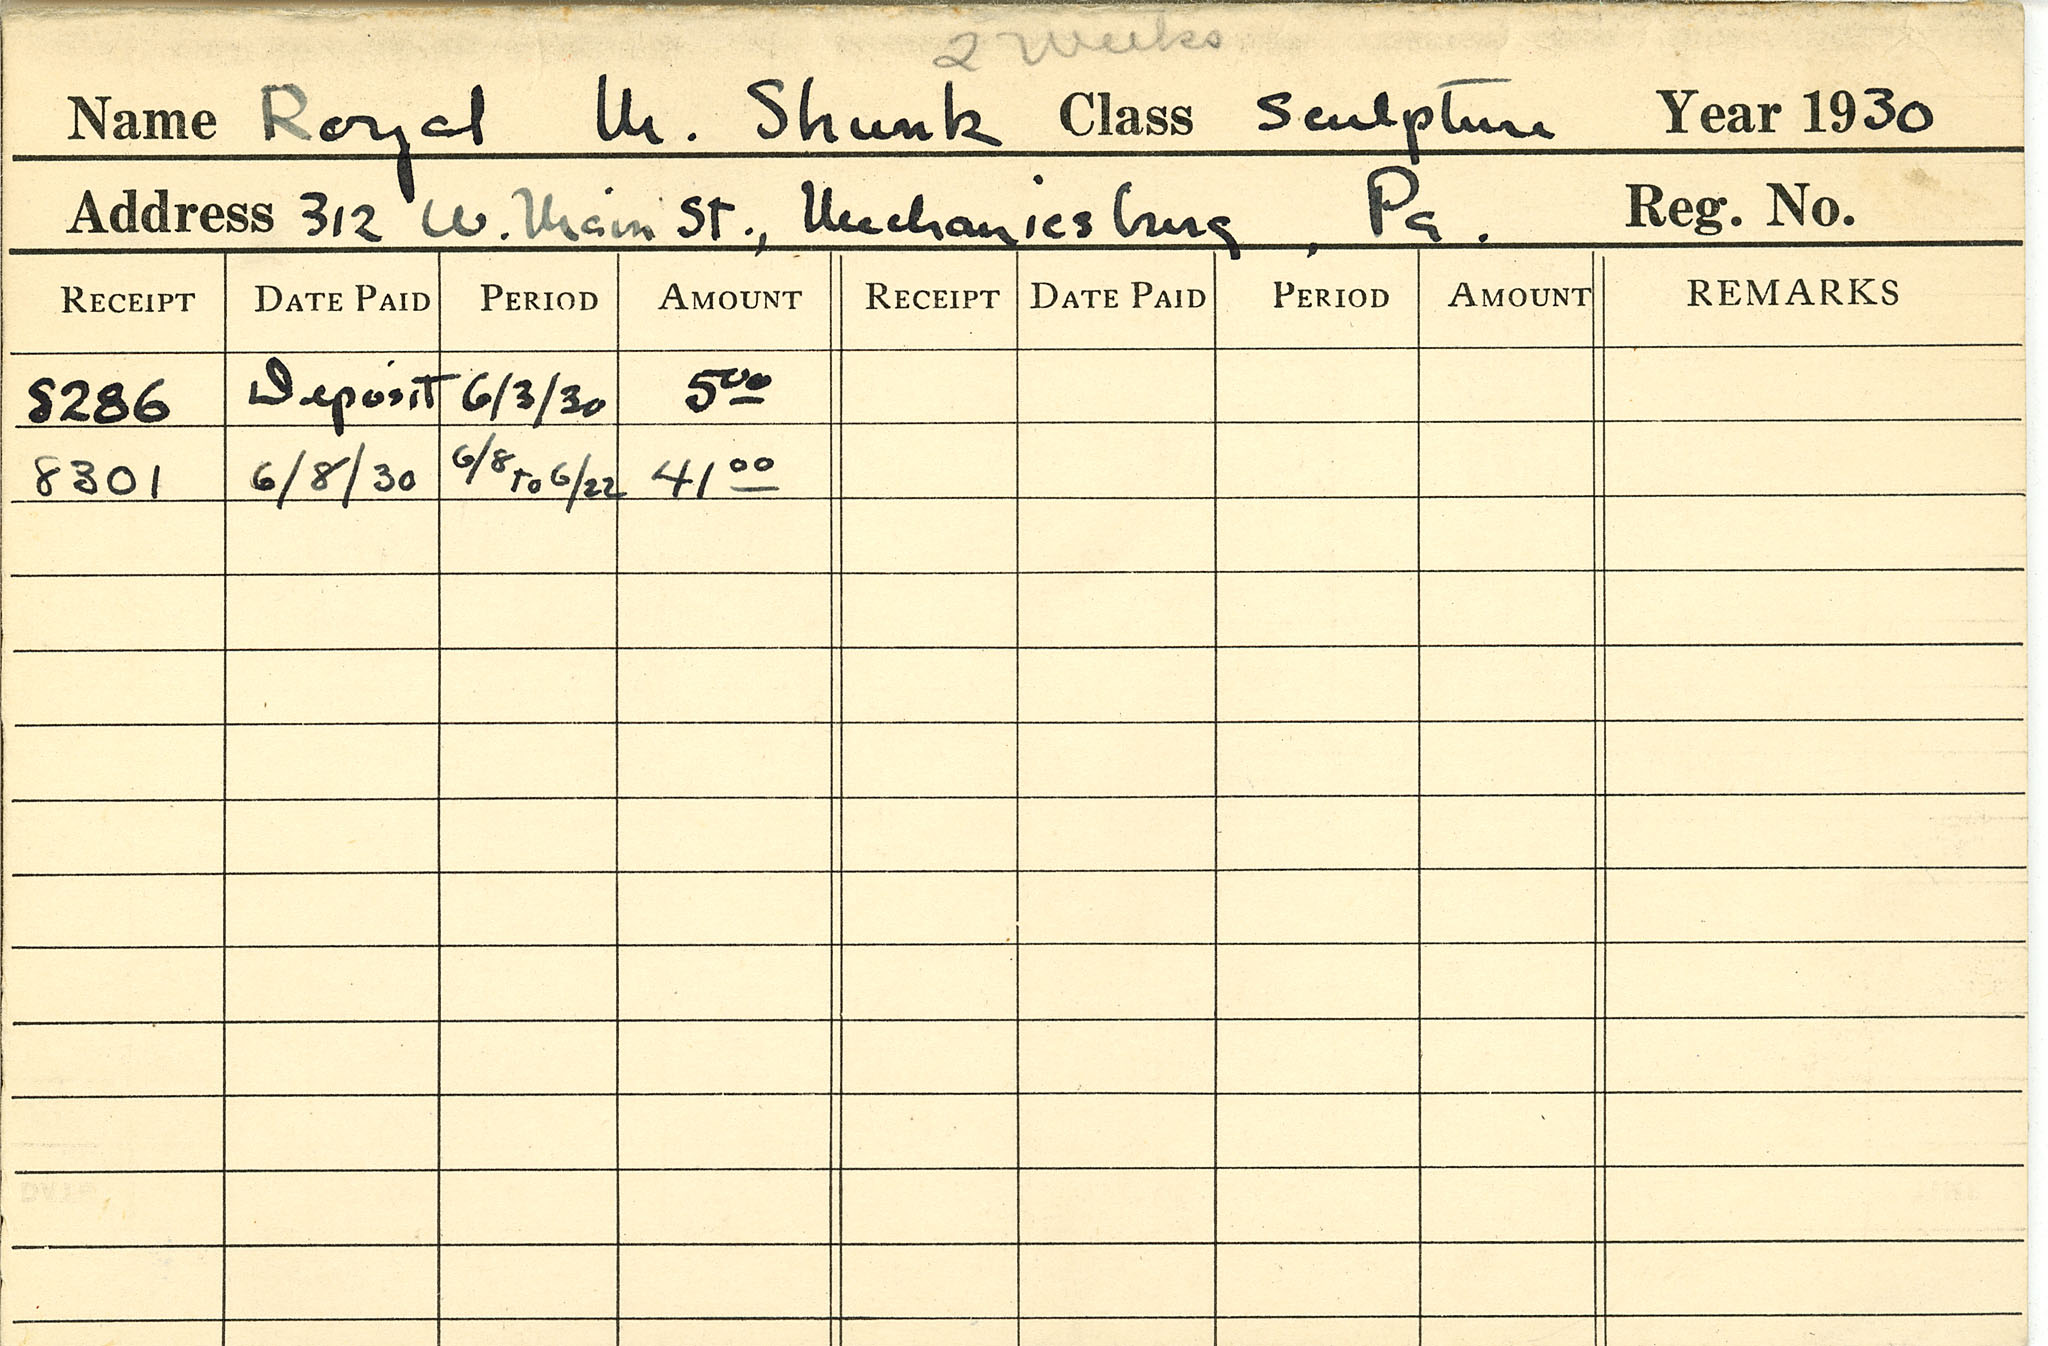 2 Weeks
Name Royal M. Shunk Class Sculpture Year 1930
Address 312 W. Main St., Mechanicsburg, Pa. Reg. No.
RECEIPT DATE PAID PERIOD AMOUNT RECEIPT DATE PAID PERIOD AMOUNT REMARKS
8286 Deposit 6/3/30 5 00
8301 6/8/30 6/8 to 6/22 41 00